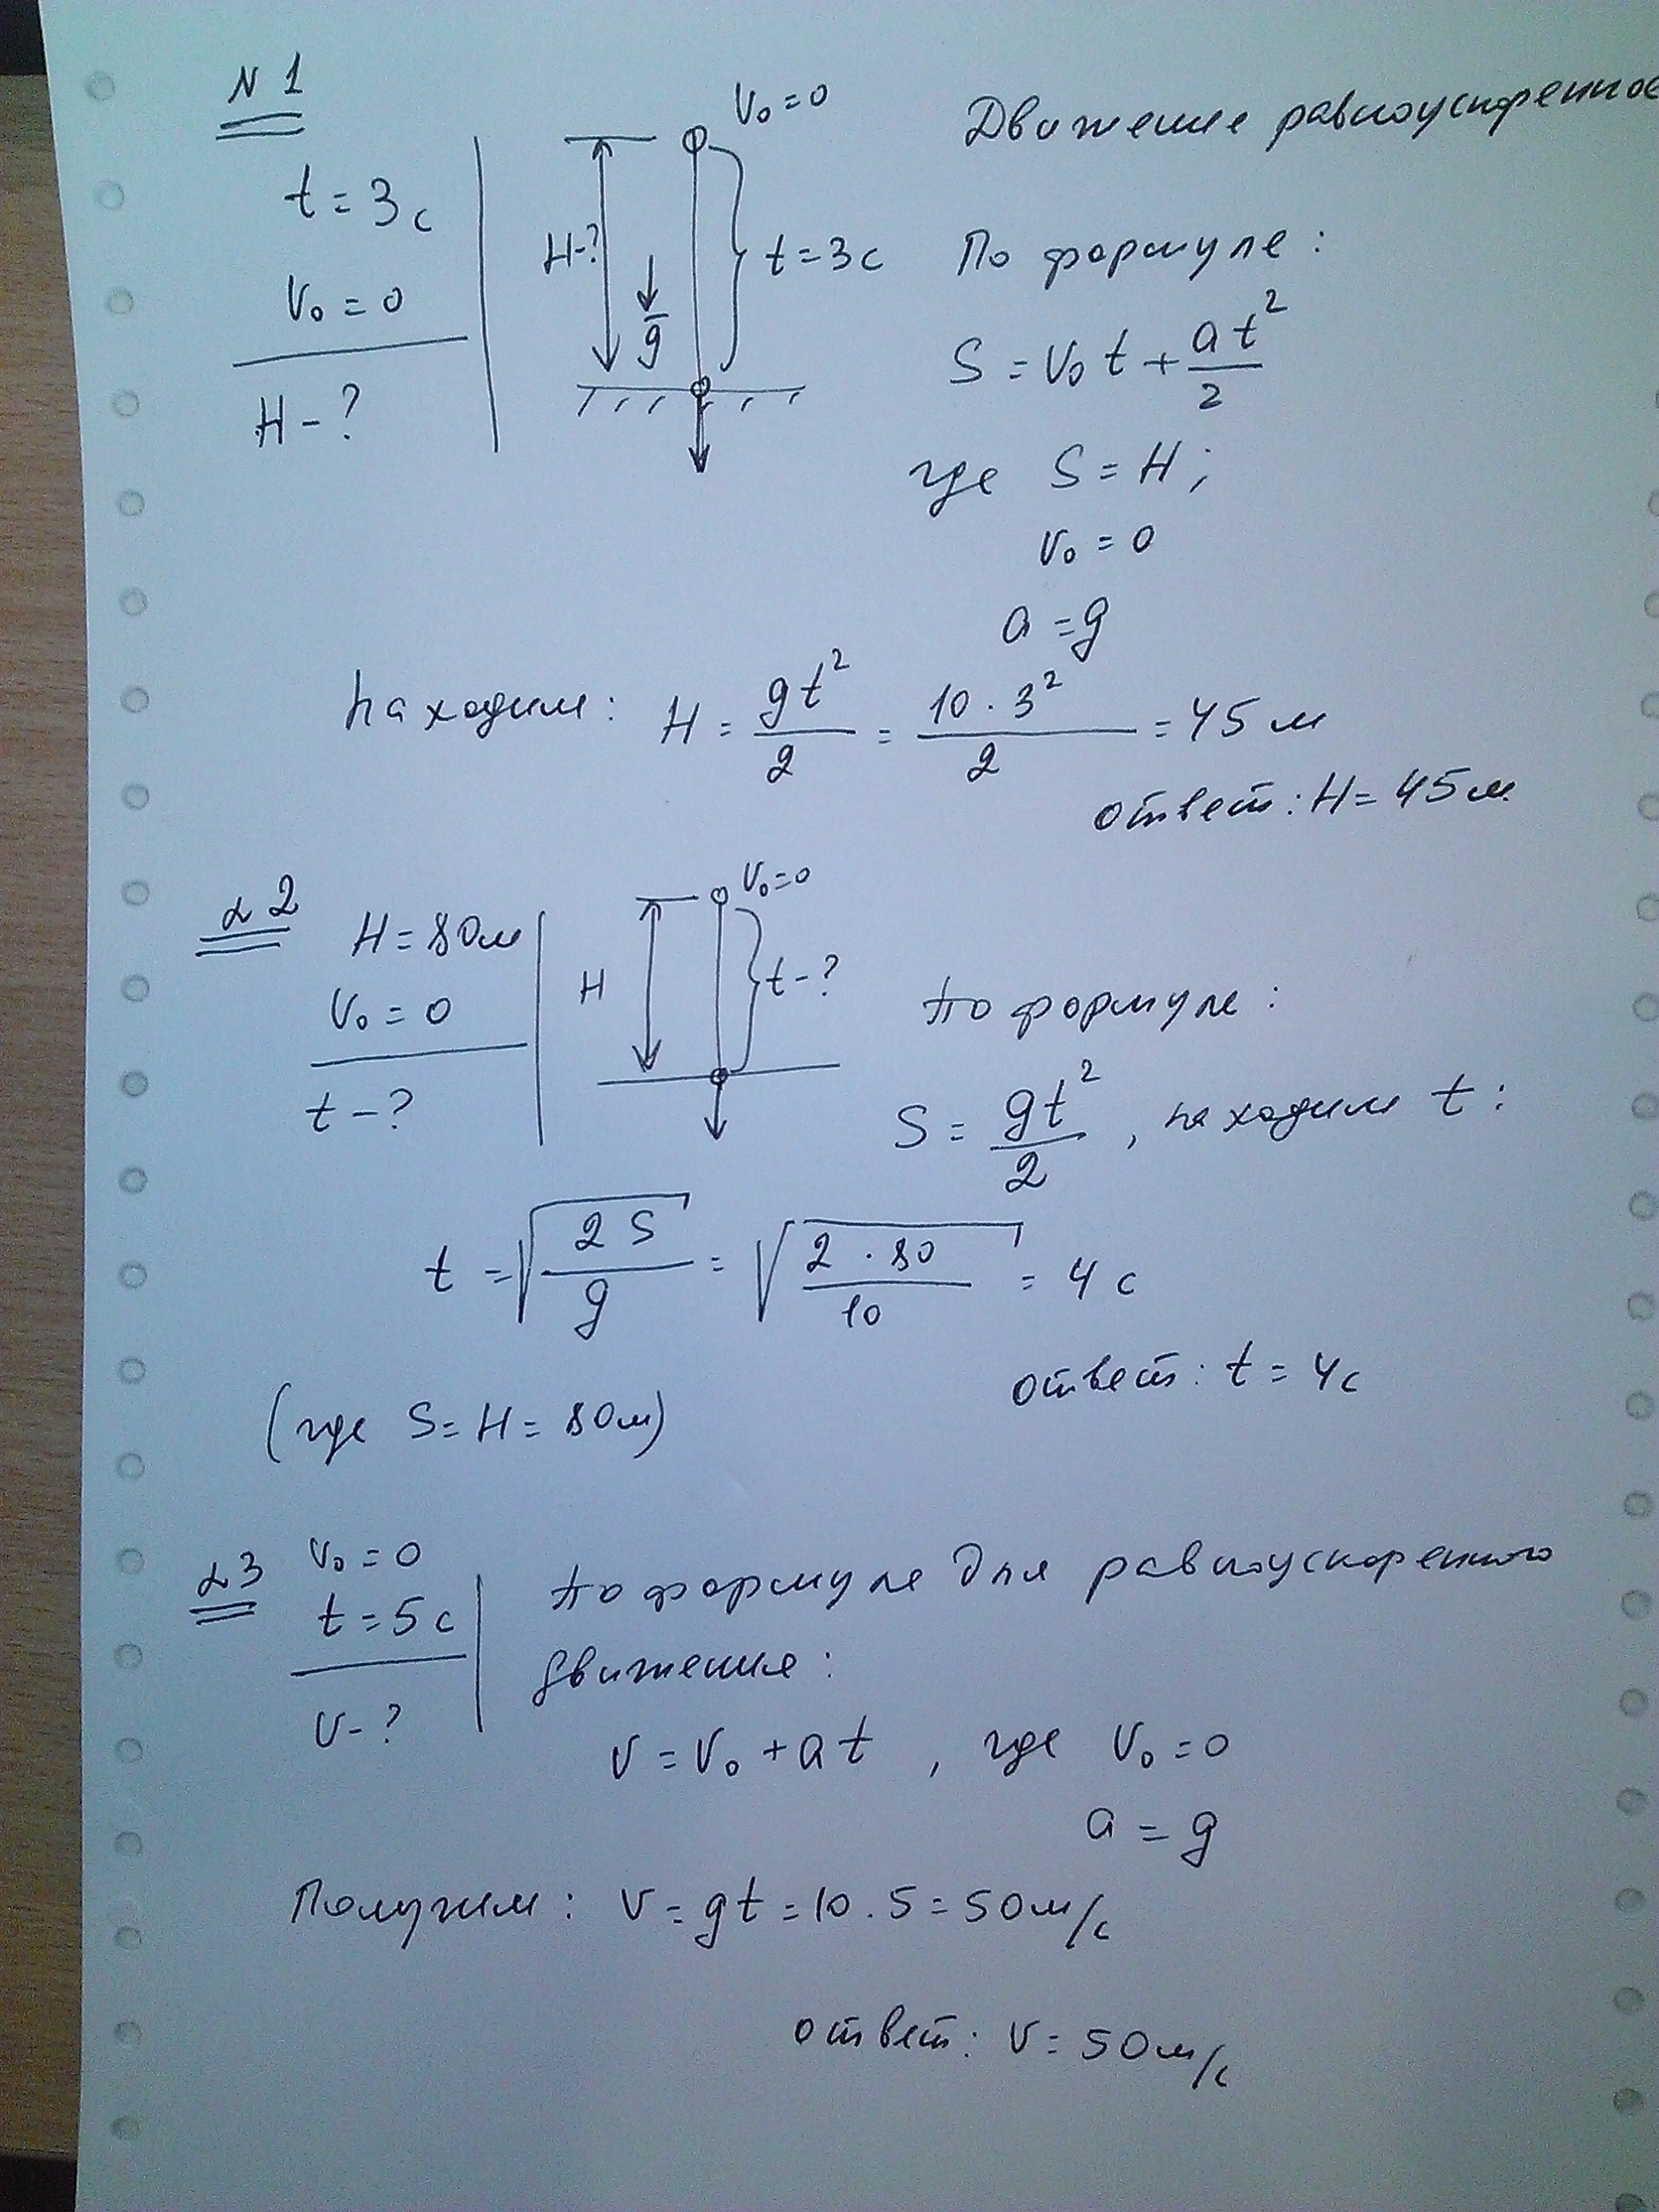 N 1
t = 3c
V₀ = 0
H - ?
V₀ = 0
H-?
g
t = 3c
Движение равноускоренное
По формуле:
S = V₀ t + at²/2
где S = H;
V₀ = 0
a = g
находим: H = gt²/2 = 10 · 3²/2 = 45 м
ответ: H = 45 м
№ 2
H = 80м
V₀ = 0
t - ?
V₀ = 0
H
t - ?
по формуле:
S = gt²/2, находим t:
t = √(2S/g) = √(2 · 80/10) = 4 c
ответ: t = 4c
(где S = H = 80м)
№3
V₀ = 0
t = 5c
V - ?
по формуле для равноускоренного
движения:
V = V₀ + at, где V₀ = 0
a = g
Получим: V = gt = 10 . 5 = 50м/c
ответ: V = 50м/c